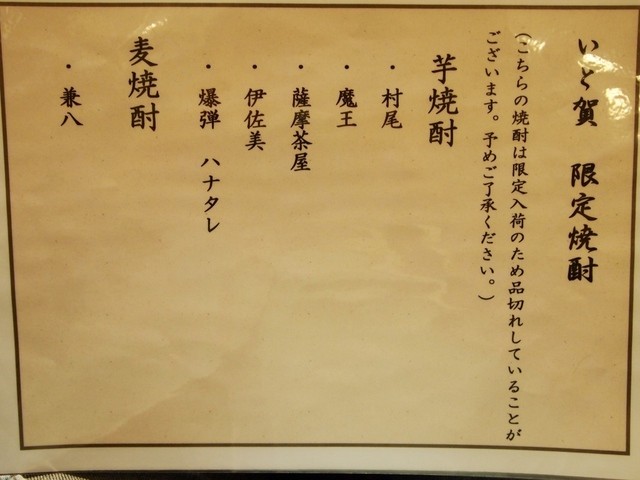 いと賀 限定焼酎
(こちらの焼酎は限定入荷のため品切れしていることが
ございます。予めご了承ください。)
芋焼酎
・村尾
・魔王
・薩摩茶屋
・伊佐美
・爆弾 ハナタレ
麦焼酎
・兼八